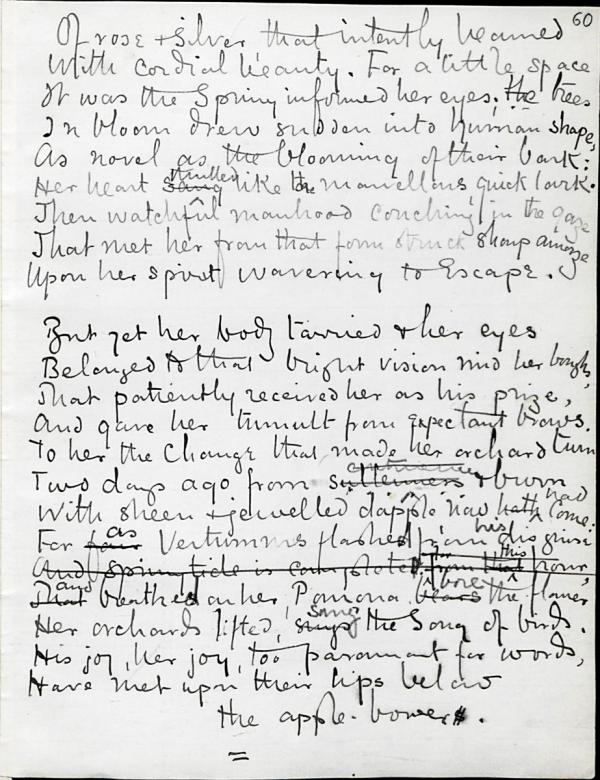 60
Of rose + silver that intently beamed
With cordial beauty. For a little space
It was the Spring informed her eyes; the trees
In bloom drew sudden into human shape,
As novel as the blooming of their bark:
thrilled
Her heart sang like the marvellous quick lark.
Then watchful manhood couching in the gaze
That met her from that form struck sharp amaze
Upon her spirit wavering to Escape.
But yet her body tarried + her eyes
Belonged to that bright vision mid her boughs,
That patiently received her as his prize,
And gave her tumult from expectant brows.
To her the Change that made her orchard turn
Two days ago from sullenness + burn
had
With sheen + jewelled dapple now hath Come:
as his
For Vertumnus flashed from his guise
for this
And Springtide is completed from that hour,
and bore
That breathed on her, Pomona bears the flower
song
Her orchards lifted, sings the Song of birds.
His joy, her joy, too paramount for words,
Have met upon their lips below
the apple-bowers.
=